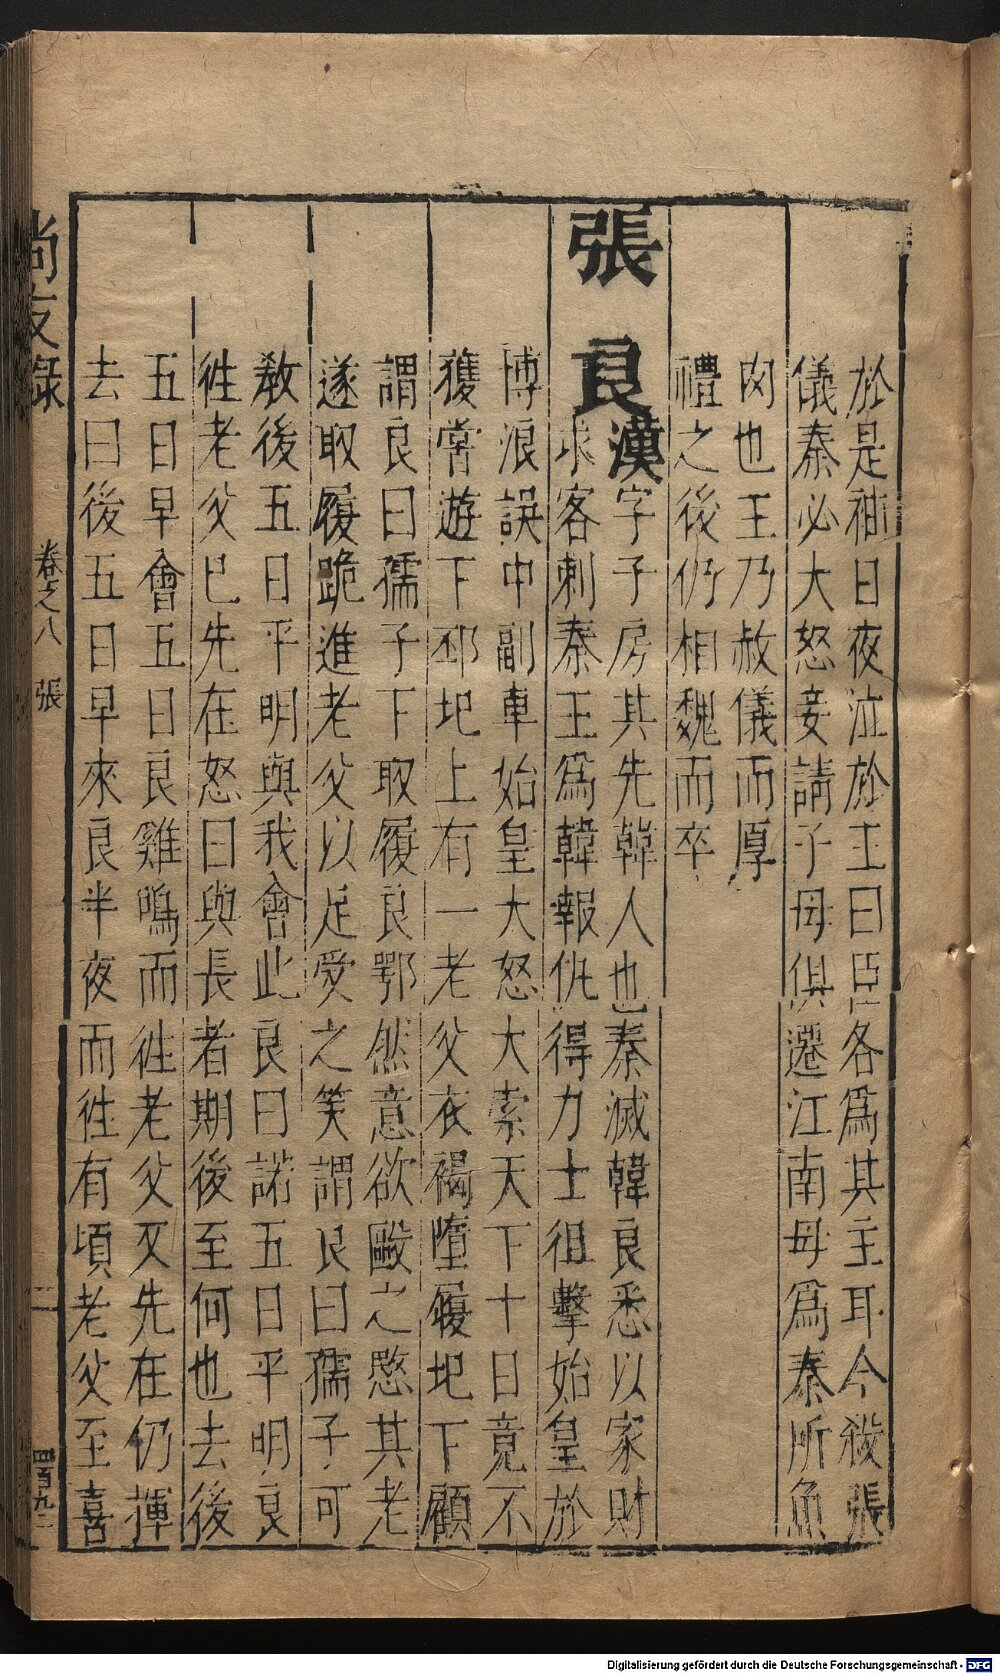 於是䄂日夜泣於王曰臣各爲其主耳今殺張
儀秦必大怒妾請子母俱遷江南毋爲秦所魚
肉也王乃赦儀而厚
禮之後仍相魏而卒
張良漢字子房其先韓人也秦滅韓良悉以家財
求客刺秦王爲韓報仇得力士狙擊始皇於
博浪誤中副車始皇大怒大索天下十日竟不
獲嘗遊下邳圯上有一老父衣褐墮履圯下顧
謂良曰孺子下取履良鄂然意欲毆之愍其老
遂取履跪進老父以足受之笑謂良曰孺子可
教後五日平明與我會此良曰諾五日平明良
徃老父已先在怒曰與長者期後至何也去後
五日早會五日良雞鳴而徃老父又先在仍揮
去曰後五日早來良半夜而徃有頃老父至喜
尚友錄 卷之八 張 二 四百九二
Digitalisierung gefördert durch die Deutsche Forschungsgemeinschaft - DFG